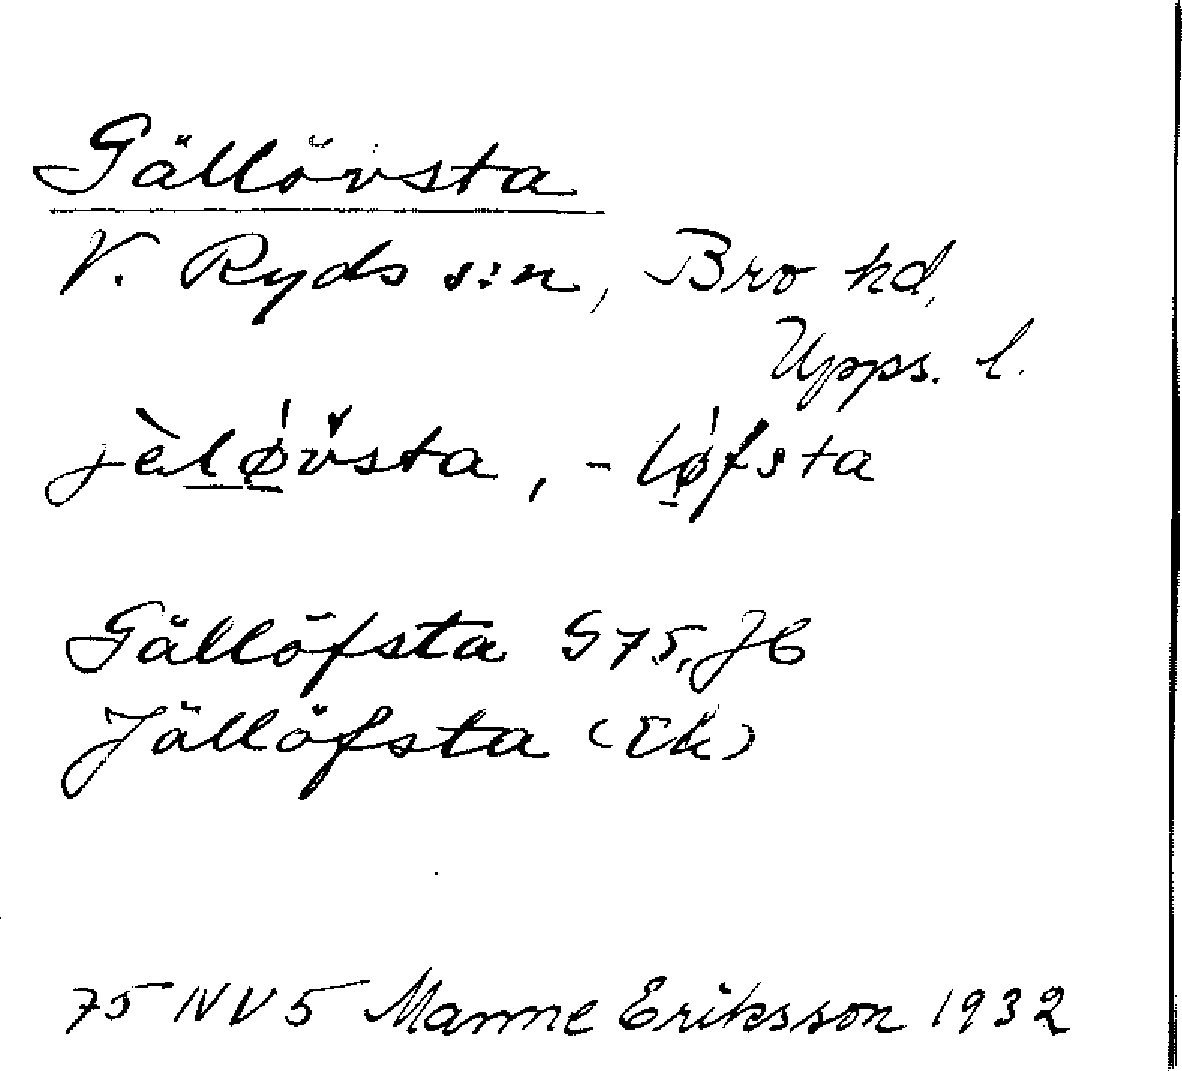 Gällövsta
V. Ryds s:n, Bro hd,
Upps. l.
jèlø̀vsta, -løfsta
Gällöfsta G75, Jb
Jällöfsta (Ek)
75 NV 5 Manne Eriksson 1932